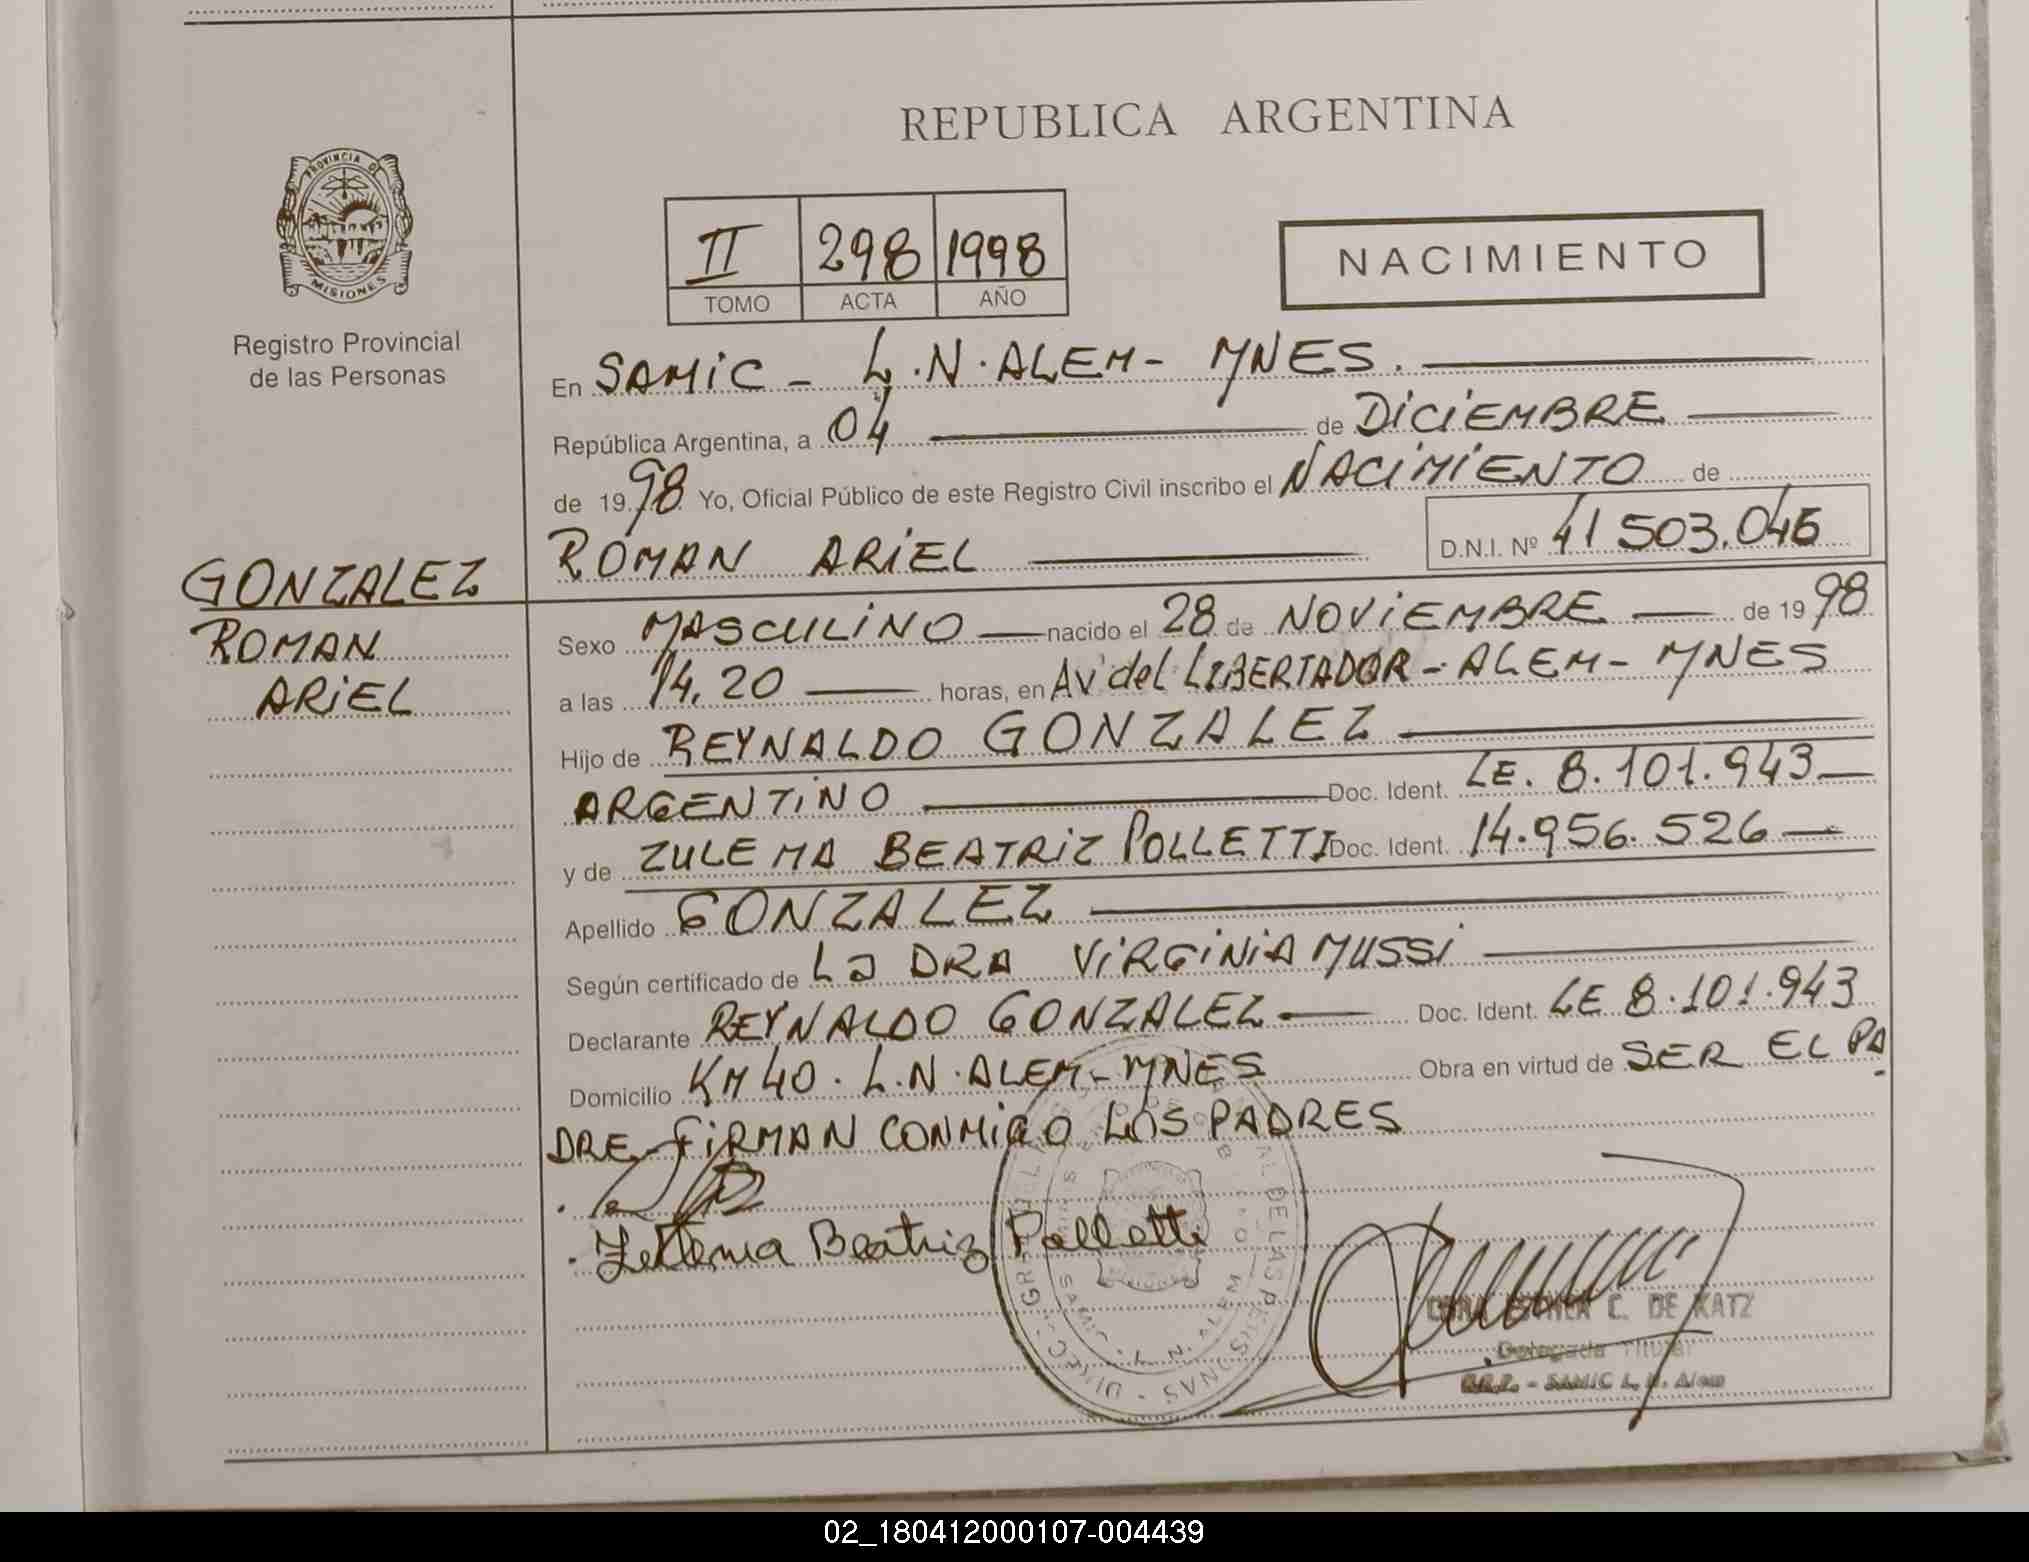 REPUBLICA ARGENTINA
PROVINCIA DE
MISIONES
Registro Provincial
de las Personas
II 298 1998
TOMO ACTA AÑO
NACIMIENTO
En SAMIC - L.N. ALEM - MNES.
República Argentina, a 04 de DICIEMBRE
de 1998 Yo, Oficial Público de este Registro Civil inscribo el NACIMIENTO de
ROMAN ARIEL D.N.I. Nº 41503.046
GONZALEZ
ROMAN
ARIEL
Sexo MASCULINO nacido el 28 de NOVIEMBRE de 1998
a las 14.20 horas, en AV del LIBERTADOR - ALEM - MNES
Hijo de REYNALDO GONZALEZ
ARGENTINO Doc. Ident. LE. 8.101.943
y de ZULEMA BEATRIZ POLLETTI Doc. Ident. 14.956.526
Apellido GONZALEZ
Según certificado de La DRA VIRGINIA MUSSI
Declarante REYNALDO GONZALEZ Doc. Ident. LE 8.101.943
Domicilio KM 40. L.N. ALEM - MNES Obra en virtud de SER EL PA
DRE - FIRMAN CONMIGO LOS PADRES
Zulema Beatriz Polletti
C. DE KATZ
Delegada Titular
- SAMIC L. N. Alem
02_180412000107-004439